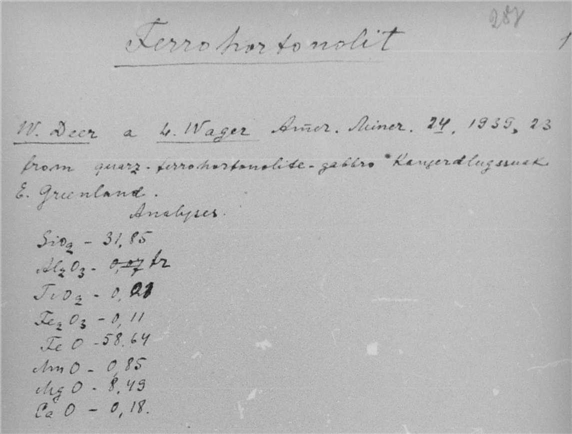 287
1
Ferrohortonolit
W. Deer a L. Wager Amer. Miner. 24, 1939, 23
from quarz-ferrohortonolite-gabbro Kangerdlugssuak
E. Greenland.
Analyses.
SiO2 - 31,85
Al2O3 - tr
TiO2 - 0,21
Fe2O3 - 0,11
FeO - 58.64
MnO - 0,85
MgO - 8,49
CaO - 0,18.